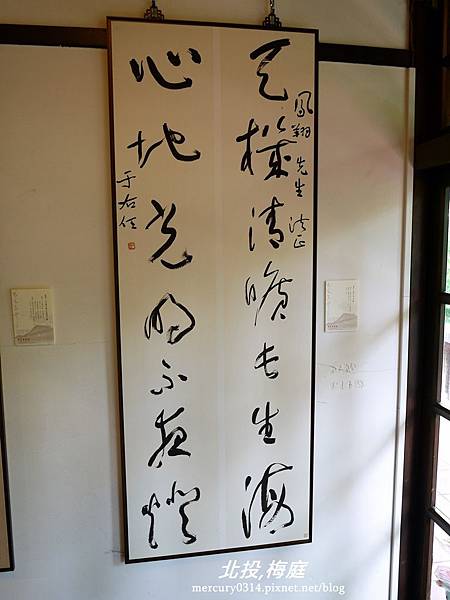 天機清曠長生海
鳳翔先生法正
心地光明不夜燈
于右任
北投,梅庭
mercury0314.pixnet.net/blog